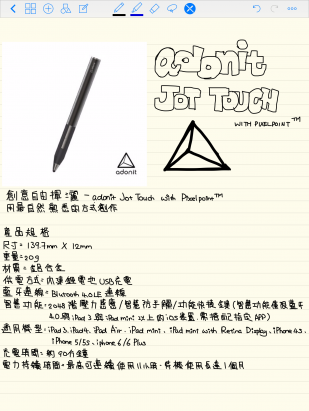 adonit
JOT TOUCH
WITH PIXELPOINT™
adonit
創意自由揮灑 - adonit Jot Touch with Pixelpoint™
用最自然熟悉的方式創作
產品規格
尺寸: 139.7mm X 12mm
重量: 20g
材質: 鋁合金
供電方式: 內建鋰電池 USB充電
藍牙連線: Bluetooth 4.0 LE 連線
智慧功能: 2048 階壓力感應/智慧防手觸/功能快捷鍵 (智慧功能僅限藍牙
4.0與iPad 3 與iPad mini 以上的iOS裝置, 需搭配指定APP)
適用機型: iPad 3, iPad4, iPad Air, iPad mini, iPad mini with Retina Display, iPhone 4s,
iPhone 5/5s, iphone 6/6 Plus
充電時間: 約 90分鐘
電力持續時間: 最高可連續使用11小時, 待機使用長達1個月